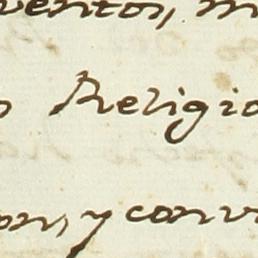 ventos, m
o Religio
on, y conv